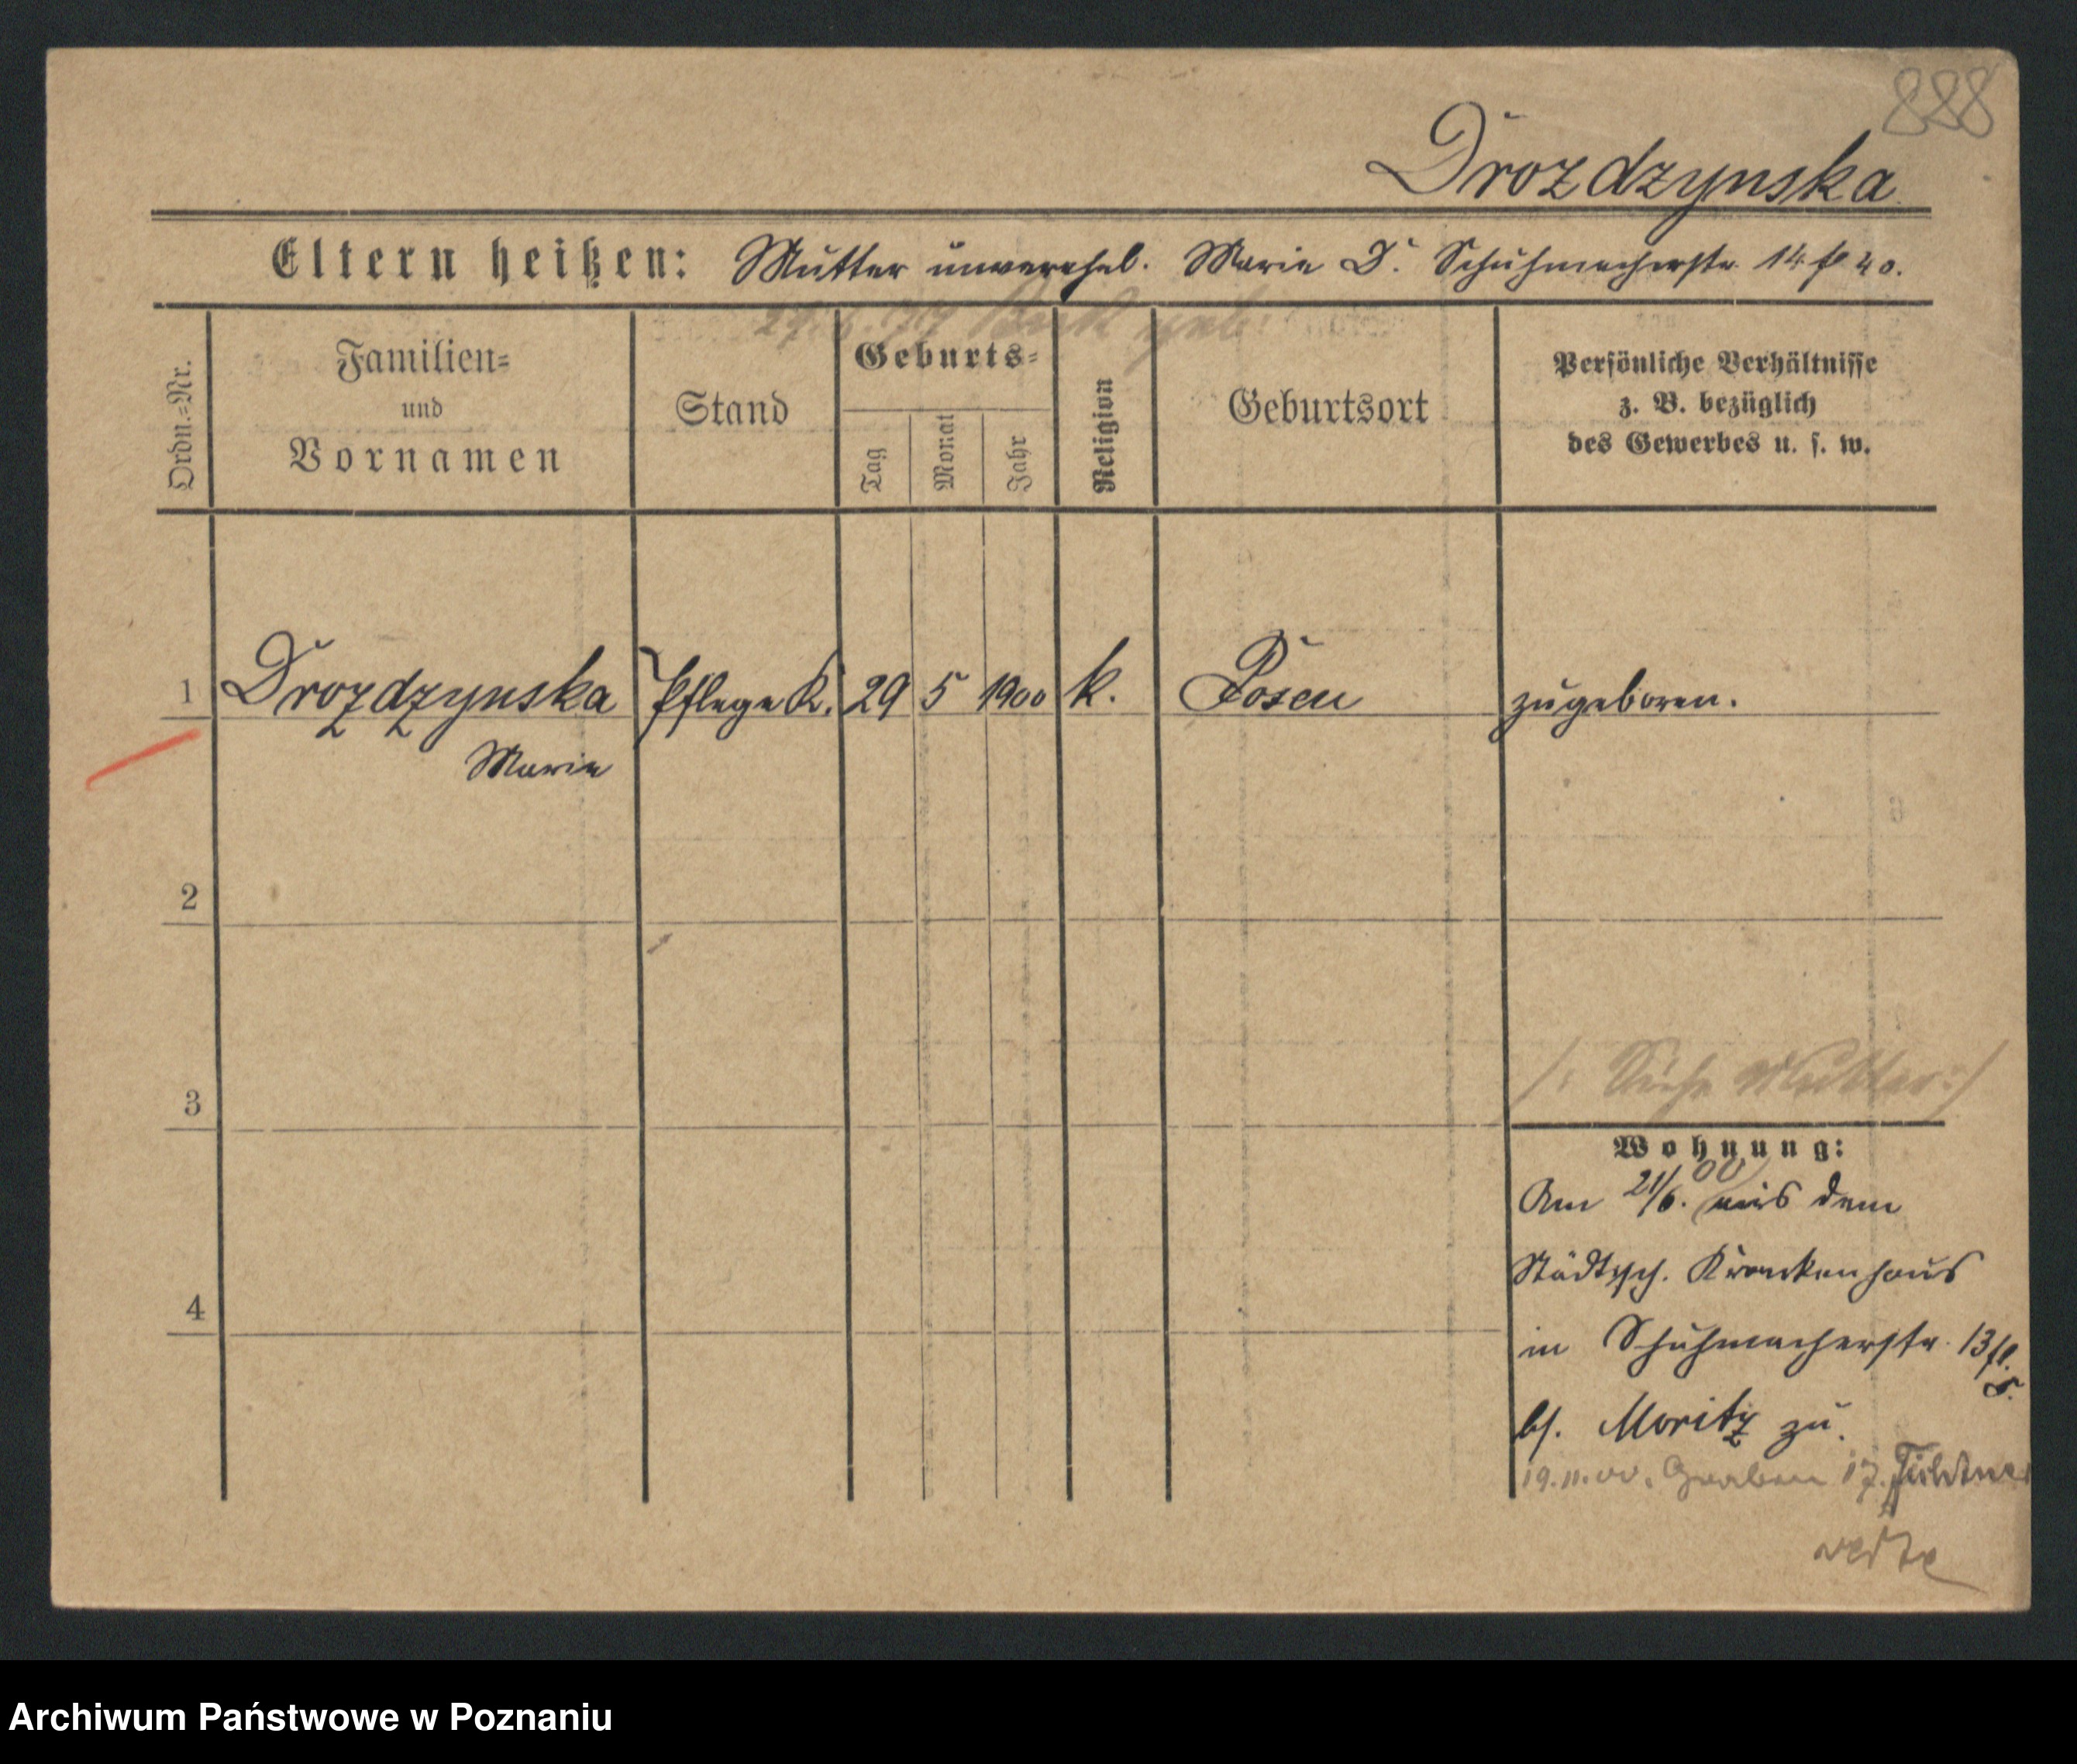 888
Drozdzynska
Eltern heißen: Mutter unverehel. Marie D. Schuhmacherstr. 14
29.5.
Ordn.=Nr.
Familien=
und
Vornamen
Stand
Geburts=
Tag
Monat
Jahr
Religion
Geburtsort
Persönliche Verhältnisse
z. B. bezüglich
des Gewerbes u. s. w.
1 Drozdzynska PflegeK. 29 5 1900 k. Posen zugeboren.
Marie
2
3
/: Siehe Mutter :/
Wohnung:
Am 21/6. 00 aus dem
Städtsch. Krankenhaus
4
in Schuhmacherstr. 13
bs. Moritz zu.
19.11.00. Graben 17.
Archiwum Państwowe w Poznaniu